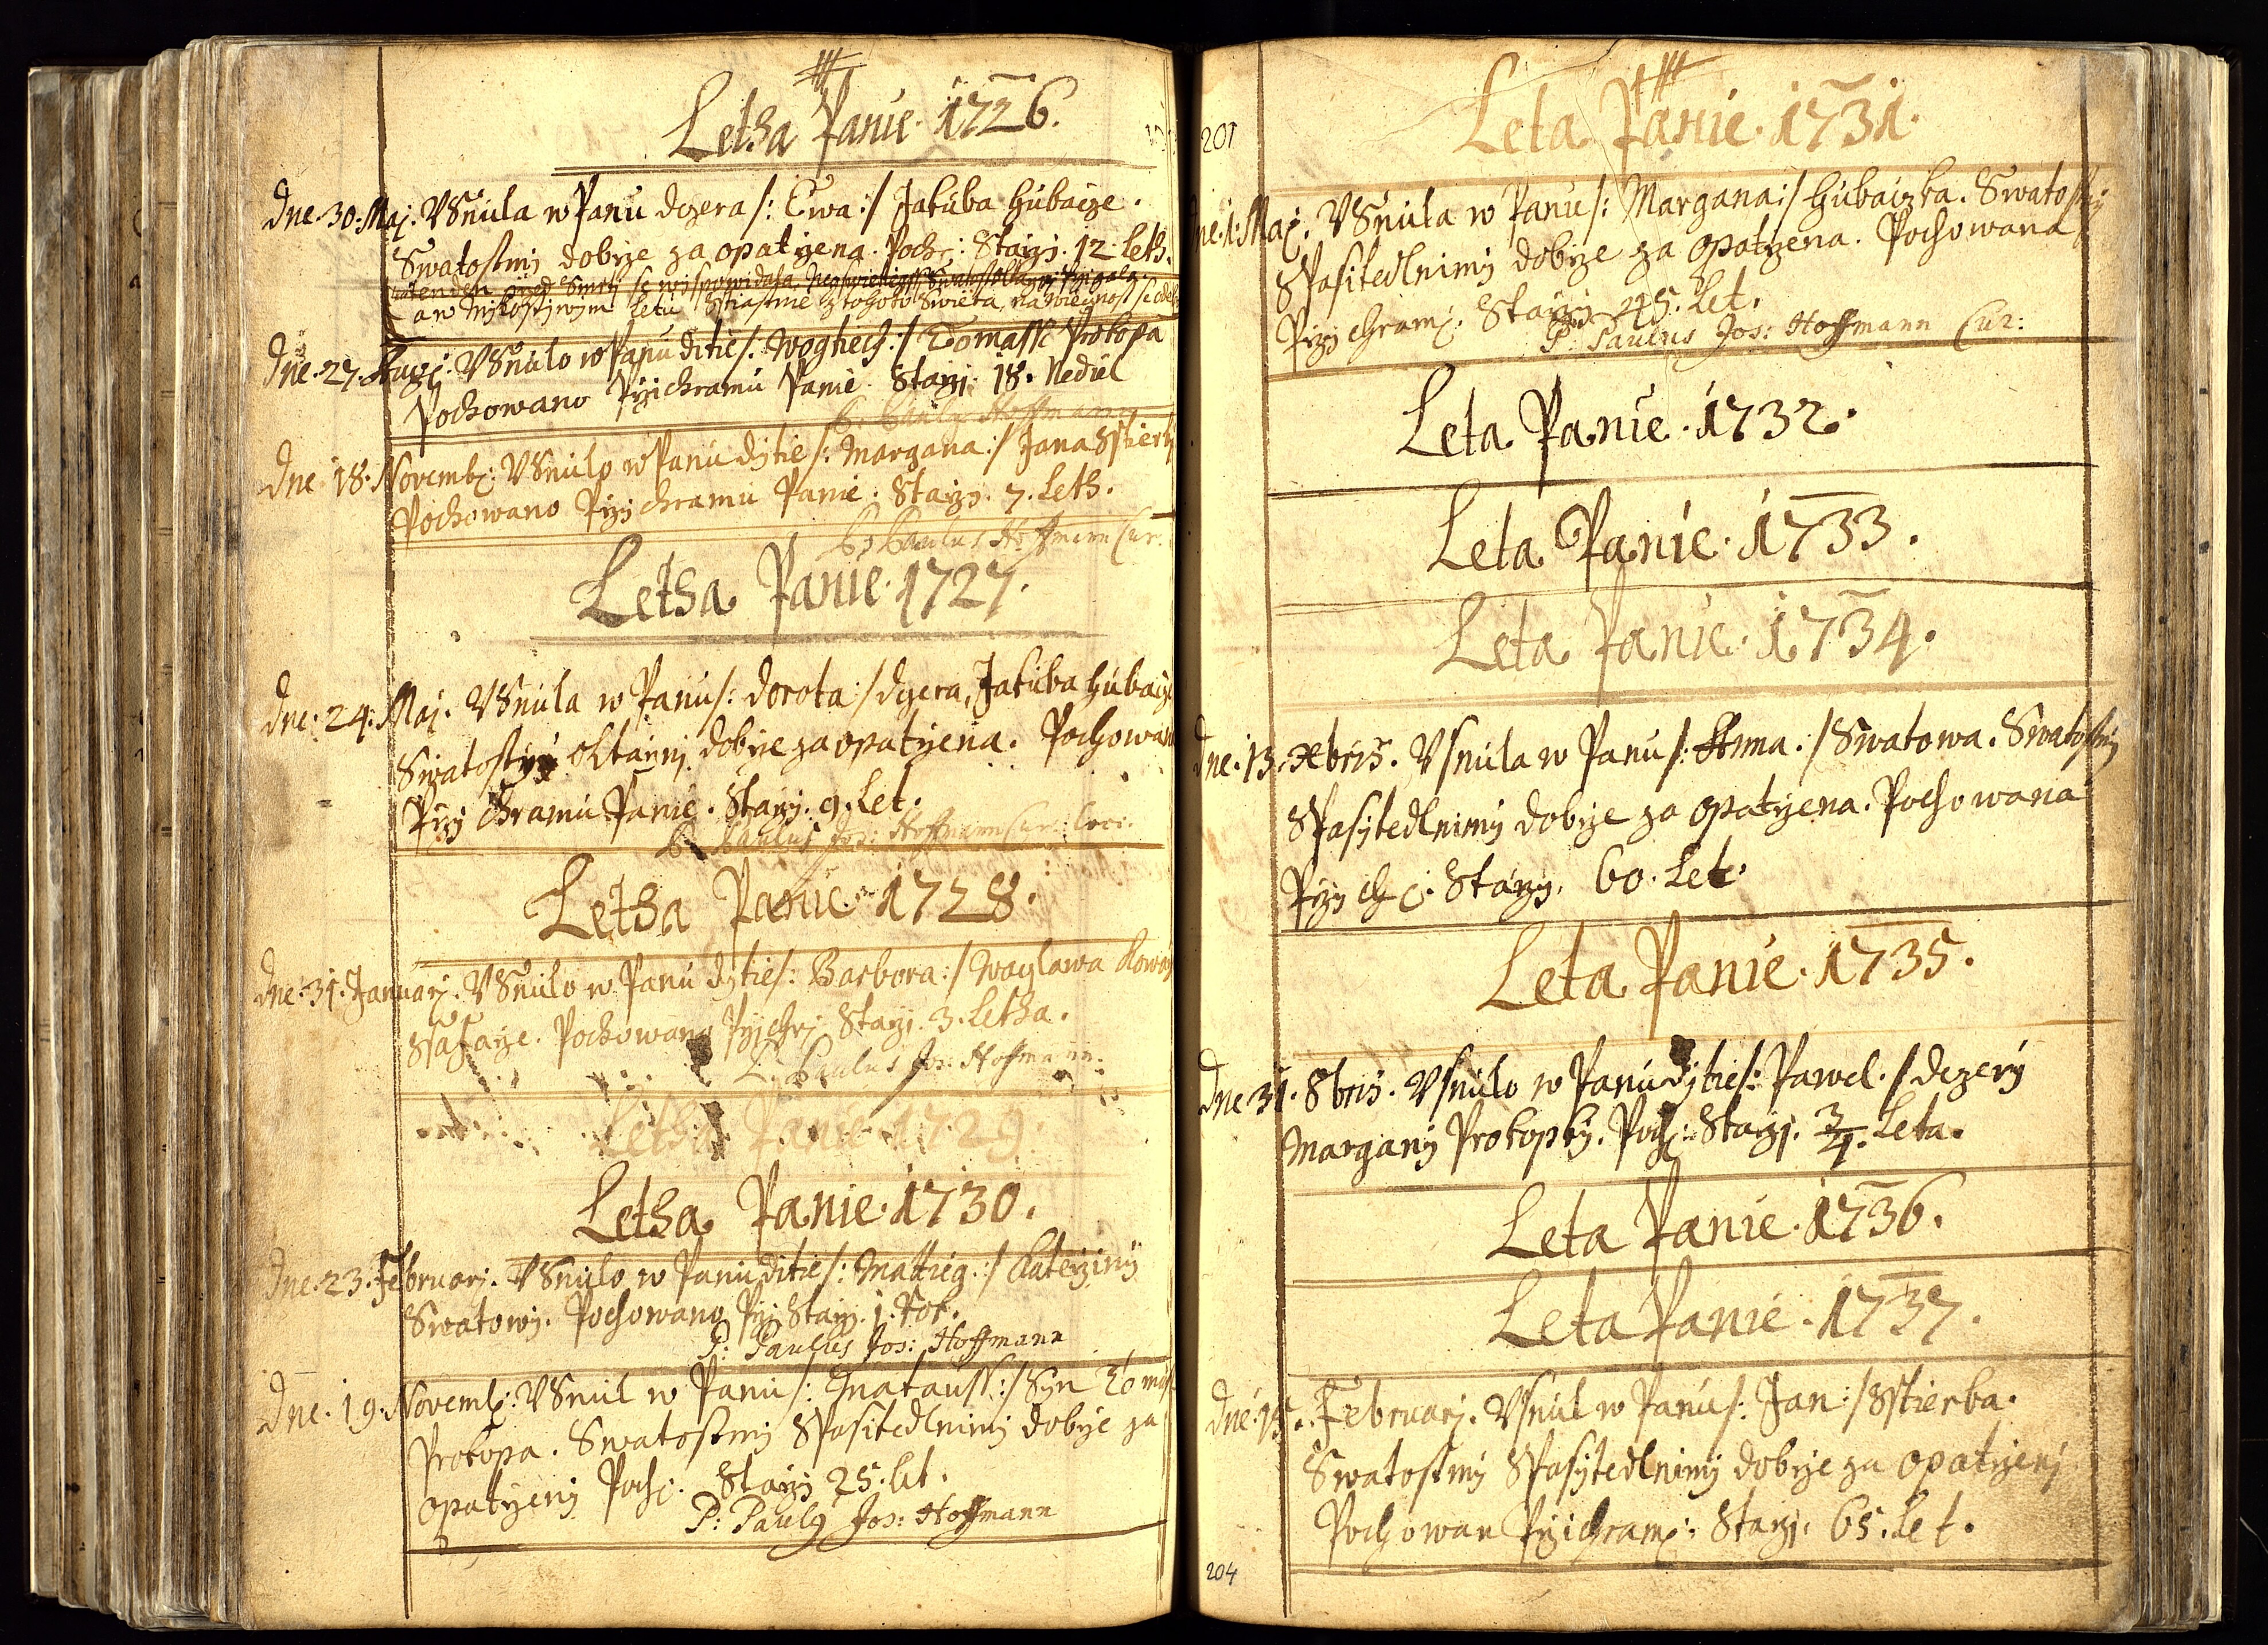 Letha Panie. 1726.
Dne. 30. Maj. VSnula w Panu dczera /: Ewa :/ Jakuba Hubacze.
Swatostmj dobrze za opatrzena. Poch: Starzj. 12. Leth.
den przed Smrtj se wispowidala,
a w Mylostywym Letu Sstiastnie z tohoto Swieta, na wiecznost se
Dne. 27. Aug: VSnulo w Panu ditie /: Wogtiech :/ Tomasse Prokopa
Pochowano Przi chramu Panie. Starzj. 18. Nediel
P. Paulus Hoffmann
Dne. 18. Novemb: VSnulo w Panu djtie /: Margana :/ Jana Sstierby
Pochowano Przj chramu Panie. Starzj. 7. Leth.
P: Paulus Hoffmann Cur.
Letha Panie. 1727.
Dne. 24. Maj. VSnula w Panu /: Dorota :/ dczera, Jakuba Hubacze
Swatostmj oltarnj dobrze za opatrzena. Pochowana
Przj chramu Panie. Starzj. 9. Let.
P. Paulus Jos: Hoffmann Cur: Loci.
Letha Panie. 1728.
Dne. 31. Januarj. VSnulo w Panu djtie /: Barbora :/ Waczlawa
Ssafarze. Pochowano Przj chrj Starzj. 3. Letha.
P. Paulus Jos: Hoffmann.
Letha Panie 1729.
Letha Panie. 1730.
Dne. 23. Februarj. VSnulo w Panu ditie /: Mattieg :/ Katerziny
Swatowj. Pochowano Przj Starzj. 1. Rok.
P: Paulus Jos: Hoffmann
Dne. 19. Novemb: VSnul w Panu /: Matauss :/ Syn
Prokopa. Swatostmj Spasitedlnimj dobrze za
opatrzenj Poch: Starzj 25. let.
P: Paulg Jos: Hoffmann
201
Leta Panie. 1731.
Dne. 1. Maj. VSnula w Panu /: Margana :/ Hubaczka. Swatostmj
Spasitedlnimj dobrze za opatrzena. Pochowana
Przj chram: Starzj 45. Let.
P: Paulus Jos: Hoffmann Cur:
Leta Panie. 1732.
Leta Panie. 1733.
Leta Panie. 1734.
Dne. 13. Xbris. Vsnula w Panu /: Anna. / Swatowa. Swatostmj
Spasytedlnimj dobrze za opatrzena. Pochowana
Przj ch: Starzj. 60. Let.
Leta Panie. 1735.
Dne 31. 8bris. Vsnulo w Panu djtie /: Pawel. / dczerÿ
Marganÿ Prokopkÿ. Poch: Starzj. 3/4. Leta.
Leta Panie. 1736.
Leta Panie. 1737.
Dne. 15. Februarj. Vsnul w Panu /: Jan :/ Sstierba.
Swatostmj Spasytedlnimj dobrze za opatrzenj
Pochowan Przi chram: Starzj. 65. Let.
204